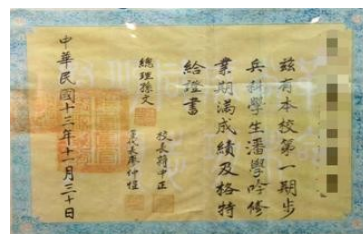 兹有本校第一期步
兵科學生潘學吟修
業期滿成績及格特
給證書
總理孫文
校長蔣中正
黨代表廖仲愷
中華民國十三年十一月三十日